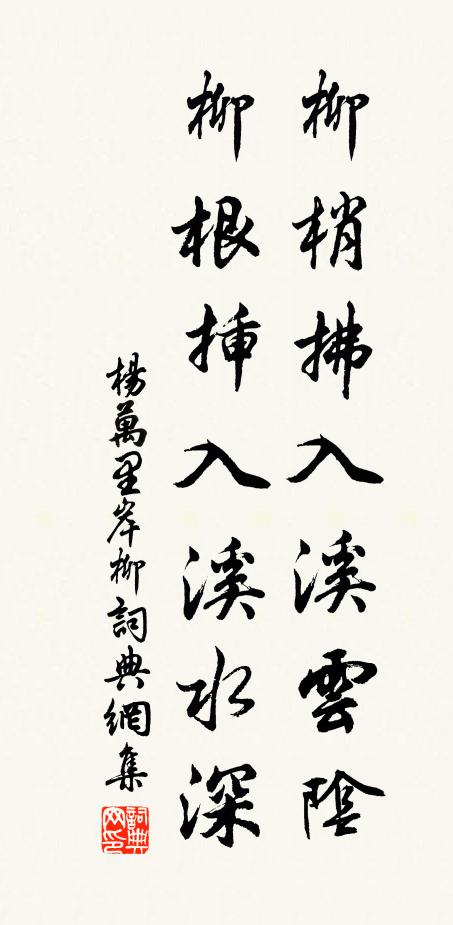 柳梢拂入溪雲陰
柳根插入溪水深
楊萬里岸柳詞典網集
詞典网印